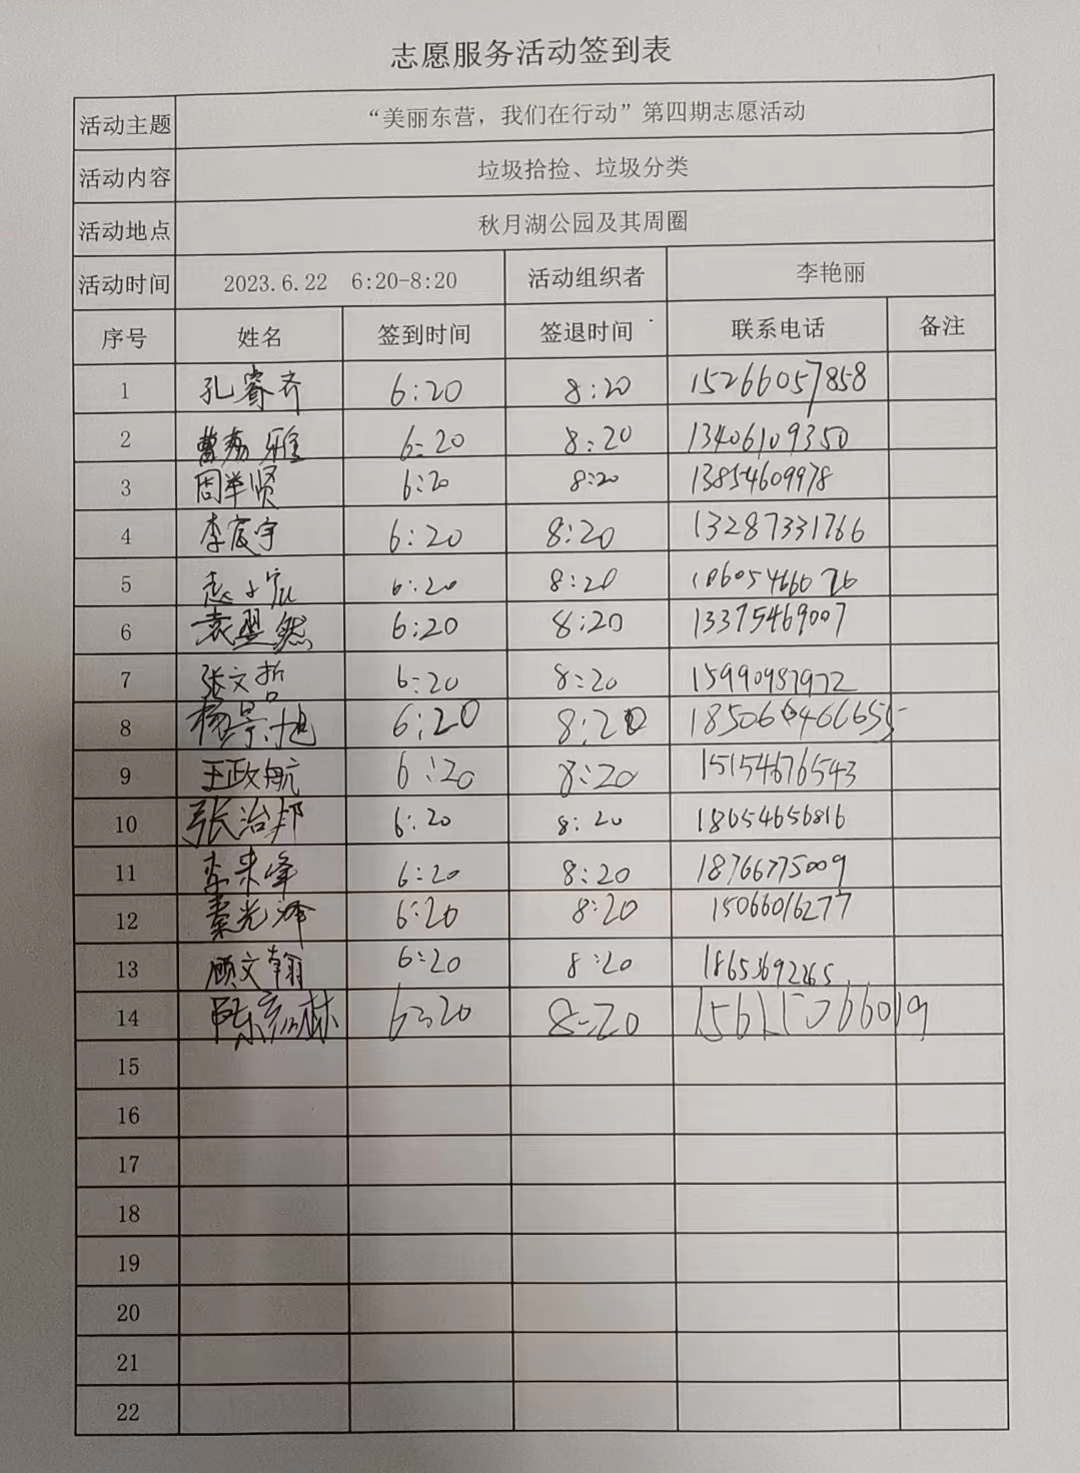 志愿服务活动签到表
活动主题 “美丽东营，我们在行动”第四期志愿活动
活动内容 垃圾拾捡、垃圾分类
活动地点 秋月湖公园及其周圈
活动时间 2023.6.22 6:20-8:20 活动组织者 李艳丽
序号 姓名 签到时间 签退时间 联系电话 备注
1 孔睿齐 6:20 8:20 15266057858
2 雅 6:20 8:20 13406109350
3 周举贤 6:20 8:20 13854609978
4 李宇 6:20 8:20 13287331766
5 6:20 8:20
6 袁翌然 6:20 8:20 13375469007
7 张文哲 6:20 8:20 15990987972
8 杨景旭 6:20 8:20
9 王政航 6:20 8:20 15154676543
10 张治邦 6:20 8:20 18654656816
11 李来峰 6:20 8:20 18766775009
12 秦光泽 6:20 8:20 15066016277
13 顾文翰 6:20 8:20 18653692265
14 陈林 6:20 8:20
15
16
17
18
19
20
21
22